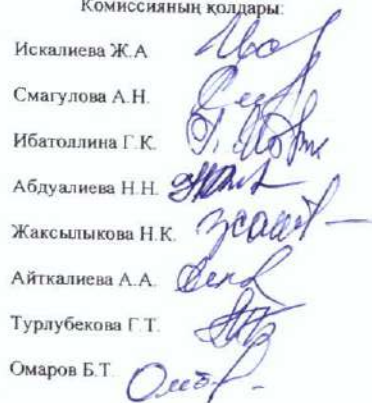 Комиссияның қолдары:
Искалиева Ж.А
Смагулова А.Н.
Ибатоллина Г.К.
Абдуалиева Н.Н.
Жаксылыкова Н.К.
Айткалиева А.А.
Турлубекова Г.Т.
Омаров Б.Т.